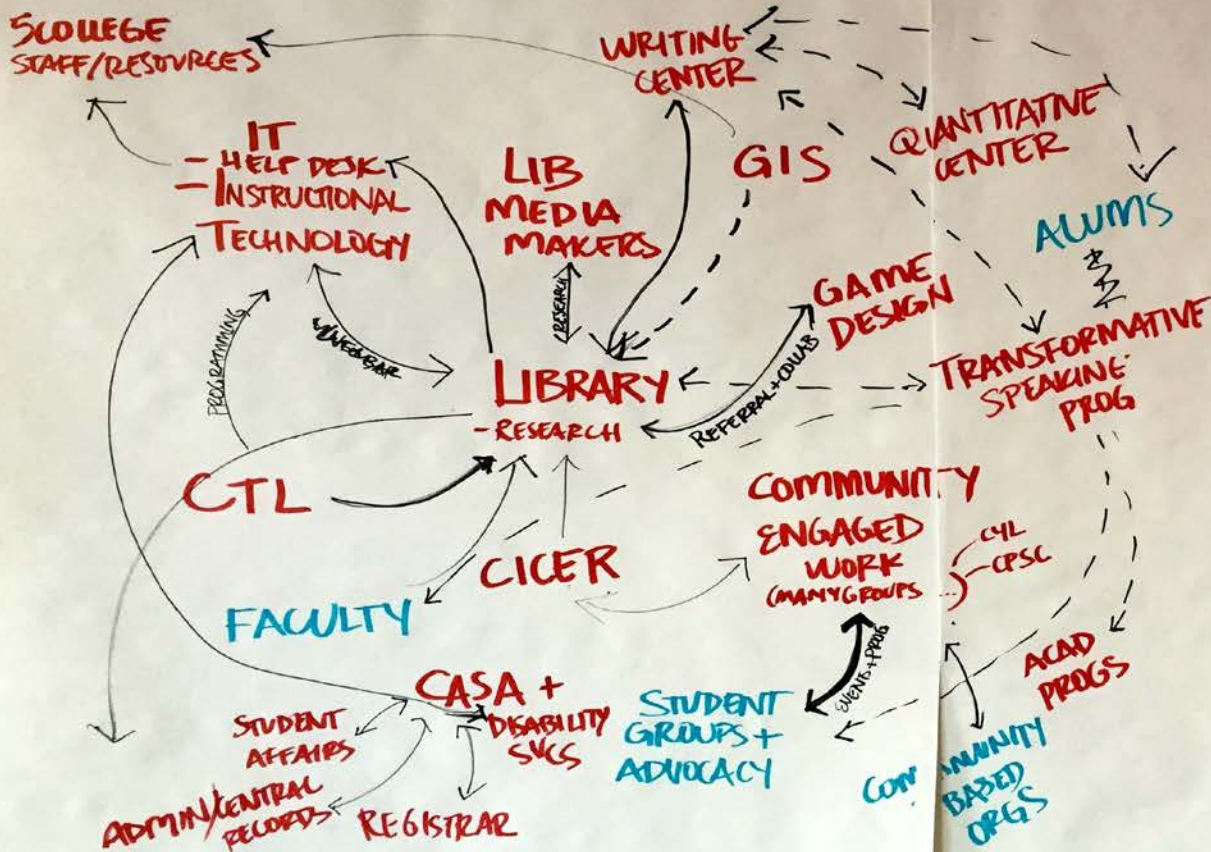 5COLLEGE
STAFF/RESOURCES
WRITING
CENTER
QUANTITATIVE
CENTER
IT
- HELP DESK
- INSTRUCTIONAL
TECHNOLOGY
LIB
MEDIA
MAKERS
GIS
ALUMS
GAME
DESIGN
RESEARCH
PROGRAMMING
REFERRAL + COLLAB
LIBRARY
- RESEARCH
TRANSFORMATIVE
SPEAKING
PROG
CTL
CICER
COMMUNITY
ENGAGED
WORK
(MANY GROUPS ...)
CYL
CPSC
FACULTY
EVENTS + PROG
ACAD
PROGS
CASA +
DISABILITY
SVCS
STUDENT
AFFAIRS
ADMIN/CENTRAL
RECORDS
REGISTRAR
STUDENT
GROUPS +
ADVOCACY
COMMUNITY
BASED
ORGS